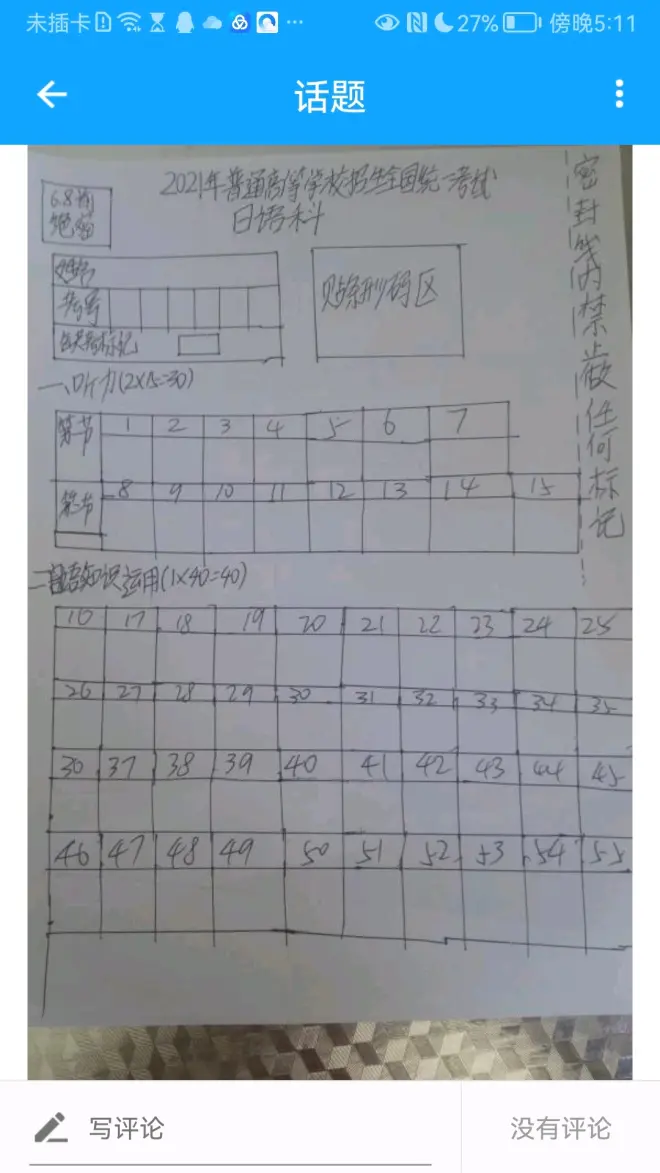 未插卡 27% 傍晚5:11
话题
2021年普通高等学校招生全国统一考试
日语科
6.8前
绝密
姓名
考号
缺考标记
贴条形码区
密封线内禁止做任何标记
一、听力(2×15=30)
第一节 1 2 3 4 5 6 7
第二节 8 9 10 11 12 13 14 15
二、日语知识运用(1×40=40)
16 17 18 19 20 21 22 23 24 25
26 27 28 29 30 31 32 33 34 35
36 37 38 39 40 41 42 43 44 45
46 47 48 49 50 51 52 53 54 55
写评论 没有评论